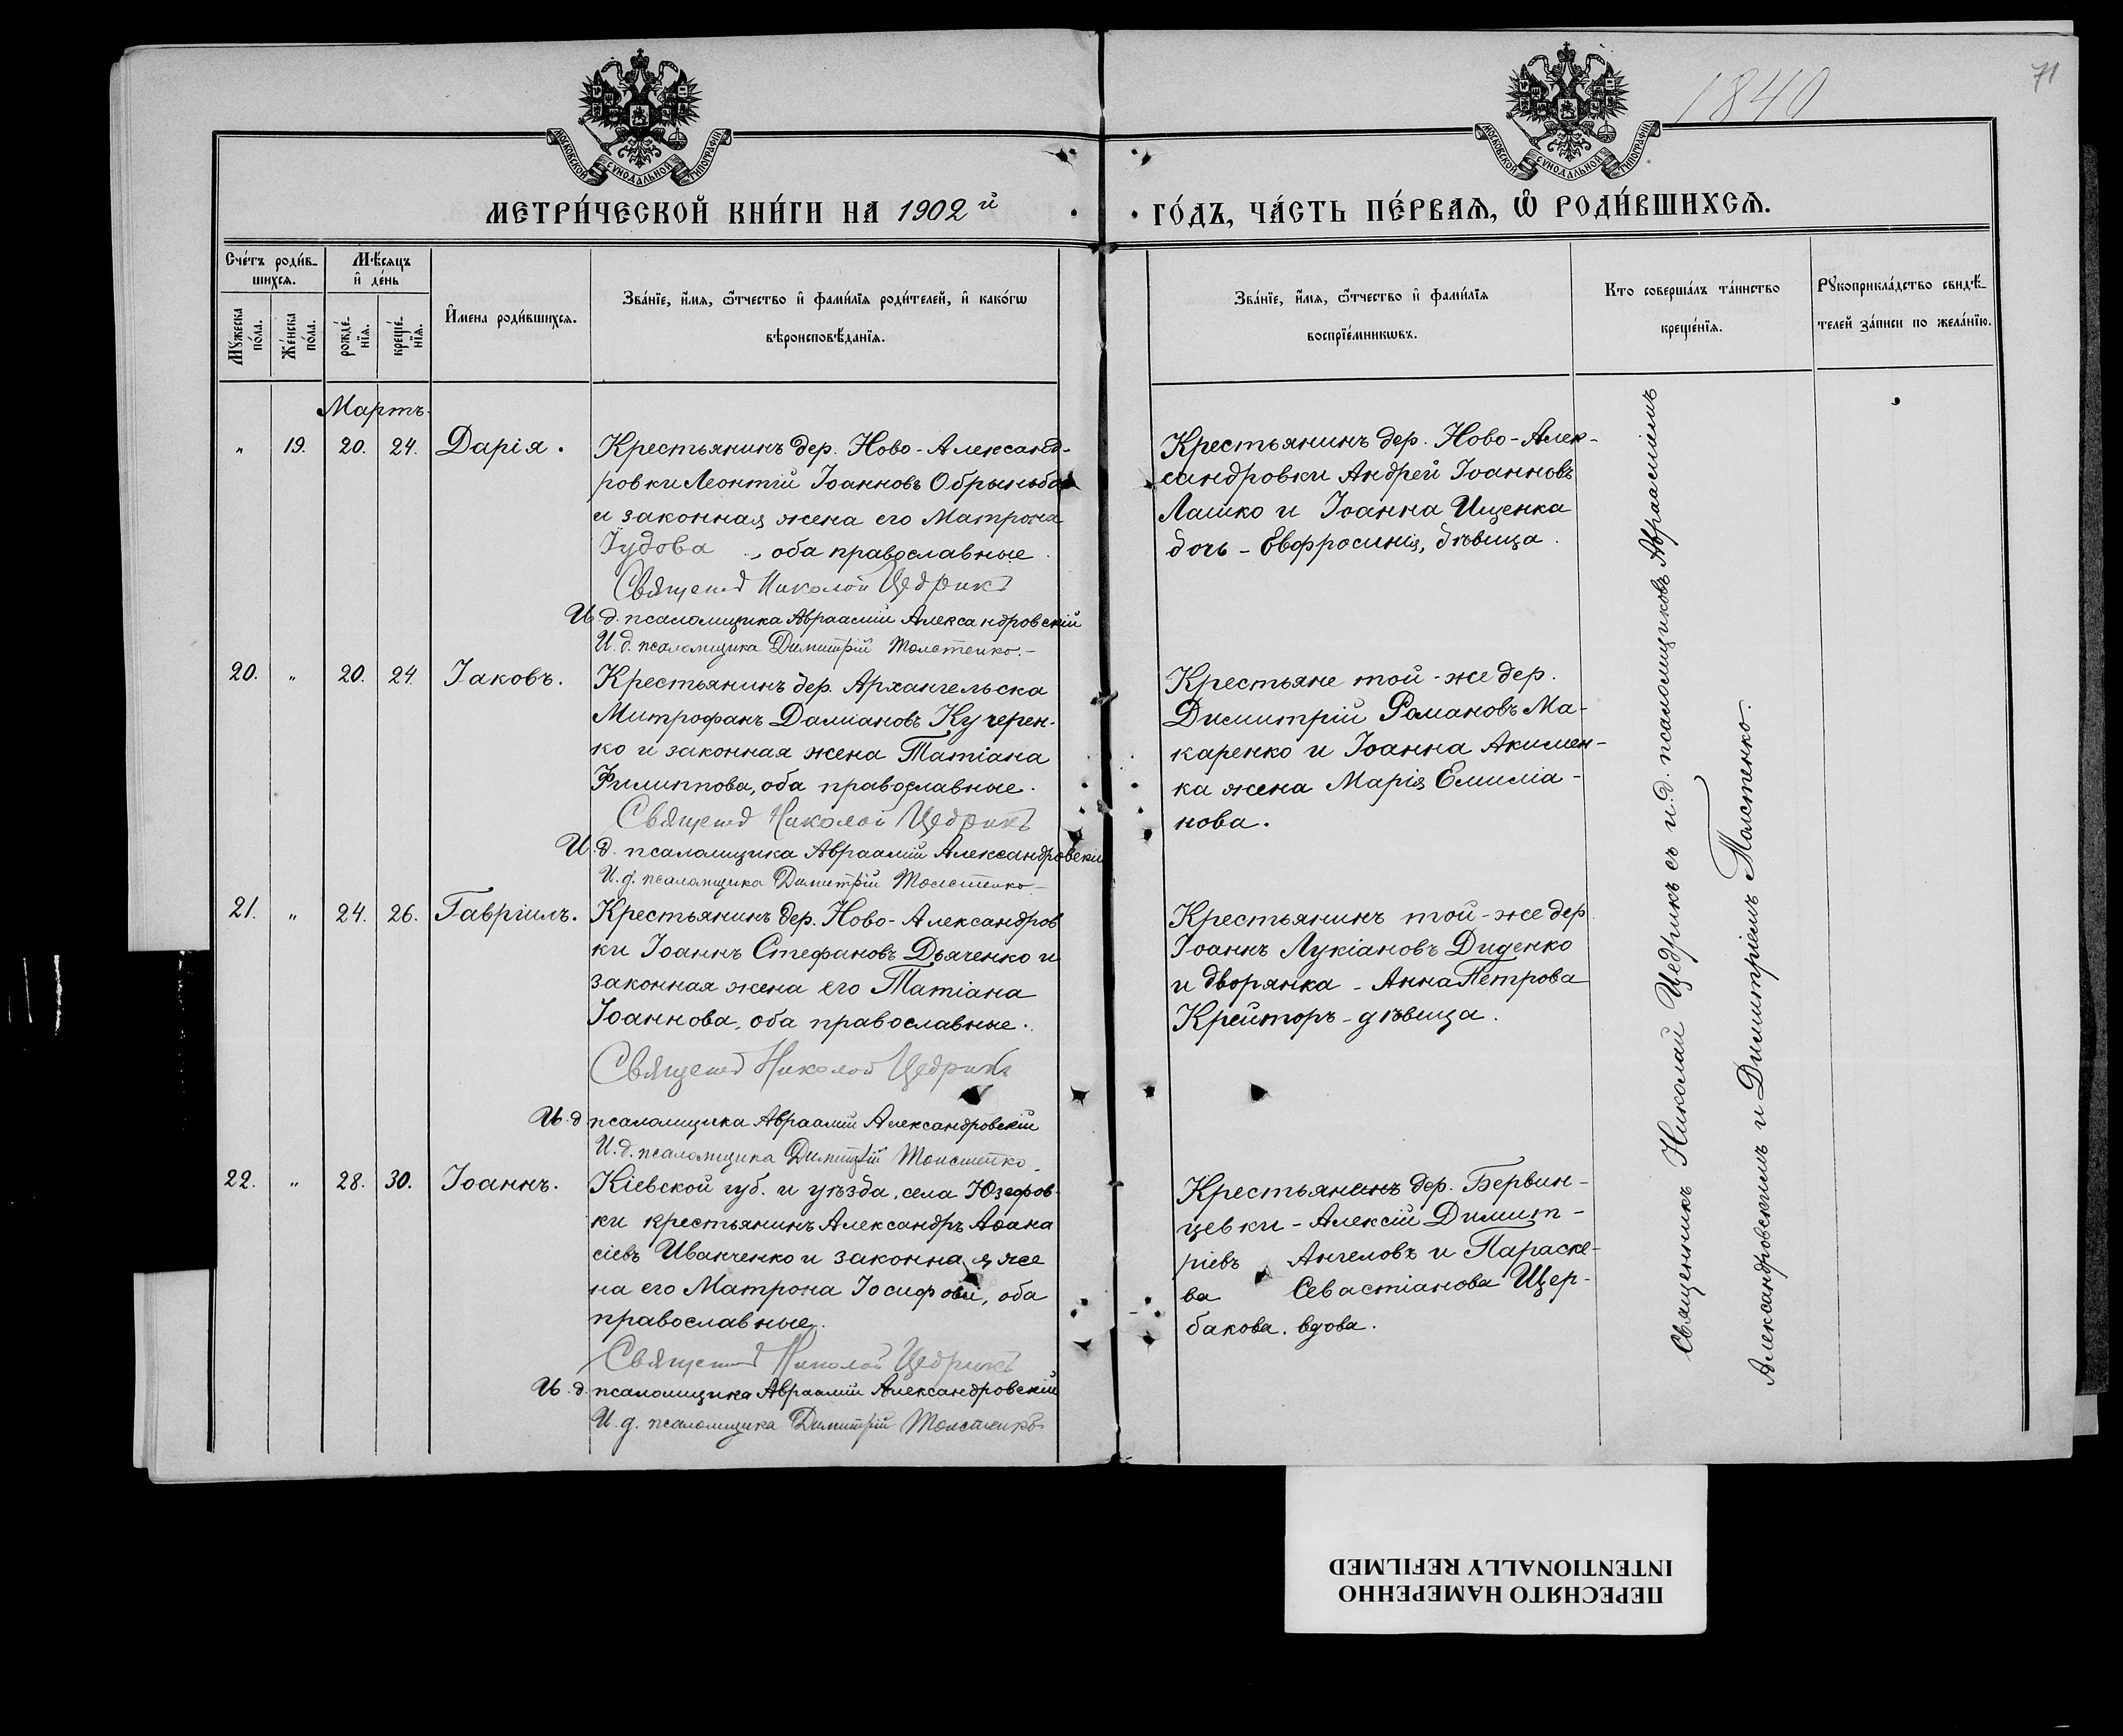 1840
71
МОСКОВСКОЙ СѴНОДАЛЬНОЙ ТИПОГРАФІИ
МОСКОВСКОЙ СѴНОДАЛЬНОЙ ТИПОГРАФІИ
МЕТРИ́ЧЕСКОЙ КНИ́ГИ НА 1902 й
ГО́ДЪ, ЧА́СТЬ ПЕ́РВАѦ, Ѡ҆ РОДИ́ВШИХСѦ.
Сче́тъ роди́в-
шихсѧ.
Мѣ́сѧцъ
и҆ де́нь
Мꙋ́жеска
по́ла.
Же́нска
по́ла.
рожде́-
нїѧ.
креще́-
нїѧ.
И҆мена роди́вшихсѧ.
Зва́нїе, и҆́мѧ, ѻ҆́тчество и҆ фами́лїѧ роди́телей, и҆ како́гѡ
вѣроисповѣ́данїѧ.
Зва́нїе, и҆́мѧ, ѻ҆́тчество и҆ фами́лїѧ
воспрїе́мникѡвъ.
Кто соверша́лъ та́инство
креще́нїѧ.
Рꙋкоприкла́дство свидѣ́-
телей за́писи по жела́нїю.
Мартъ.
" 19. 20. 24. Дарія.
Крестьянинъ дер. Ново-Александ-
ровки Леонтій Іоанновъ Обрыньба
и законная жена его Матрона
Іудова, оба православные.
Священ Николай Цедрикъ
И. д. псаломщика Авраамій Александровскій
И. д. псаломщика Димитрій Толстенко.-
Крестьянинъ дер. Ново-Алек-
сандровки Андрей Іоанновъ
Лашко и Іоанна Ищенка
дочь - Евфросинія, дѣвица.
20. " 20. 24. Іаковъ.
Крестьянинъ дер. Архангельска
Митрофанъ Даміановъ Кучерен-
ко и законная жена Татіана
Филиппова, оба православные.
Священ Николай Цедрикъ
И. д. псаломщика Авраамій Александровскій
И. д. псаломщика Димитрій Толстенко-
Крестьяне той-же дер.
Димитрій Романовъ Ма-
каренко и Іоанна Акимен-
ка жена Марія Емиліа-
нова.
21. " 24. 26. Гавріилъ.
Крестьянинъ дер. Ново-Александров
ки Іоаннъ Стефановъ Дьяченко и
законная жена его Татіана
Іоаннова, оба православные.
Священ Николай Цедрикъ
И. д псаломщика Авраамій Александровскій
И. д. псаломщика Димитрій Толстенко.
Крестьянинъ той-же дер.
Іоаннъ Лукіановъ Диденко
и дворянка - Анна Петрова
Крейторъ - дѣвица.
22. " 28. 30. Іоаннъ.
Кіевской губ. и уѣзда, села Юзефов-
ки крестьянинъ Александръ Аѳана
сіевъ Иванченко и законная же
на его Матрона Іосифова, оба
православные.
Священ Николай Цедрикъ
И. д. псаломщика Авраамій Александровскій
И. д. псаломщика Димитрій Толстенко
Крестьянинъ дер. Бервин-
цевки - Алексій Димит-
ріевъ Ангеловъ и Параске-
ва Севастіанова Щер-
бакова, вдова.
Священникъ Николай Цедрикъ съ и.д. псаломщиковъ Авраамiемъ
Александровскимъ и Димитріемъ Толстенко.
ПЕРЕСНЯТО НАМЕРЕННО
INTENTIONALLY REFILMED